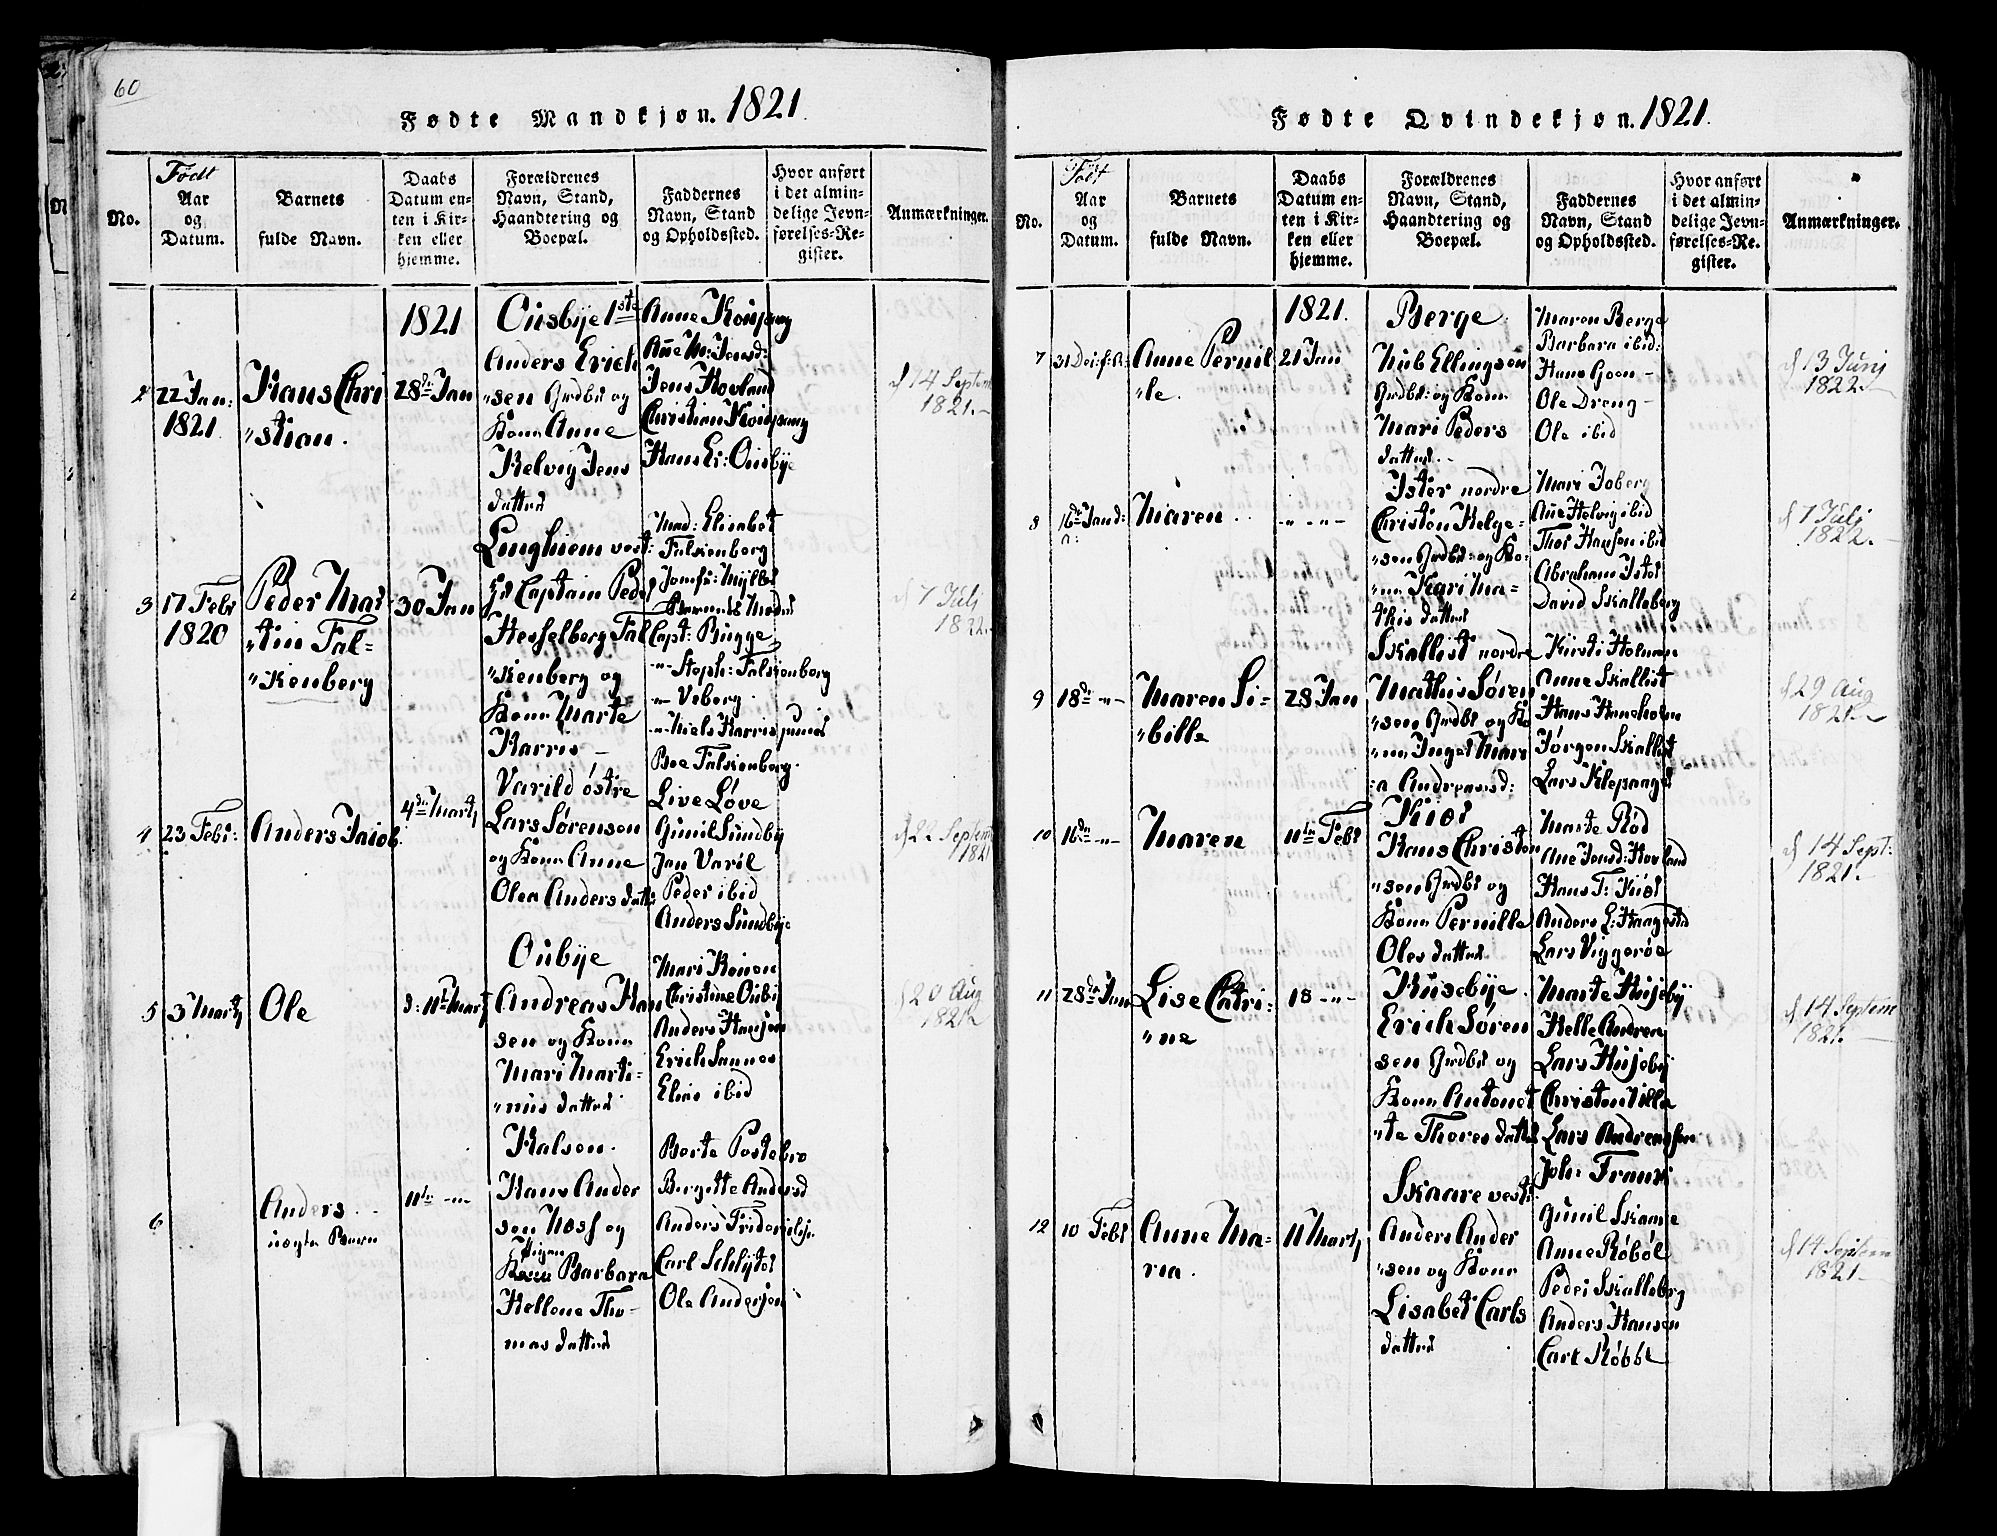 60
Fødte Mandkjøn. 1821.
No.
Født
Aar
og
Datum.
Barnets
fulde Navn.
Daabs
Datum en-
ten i Kir-
ken eller
hjemme.
Forældrenes
Navn, Stand,
Haandtering og
Boepæl.
Faddernes
Navn, Stand
og Opholdssted.
Hvor anført
i det almin-
delige Jevn-
førelses-Re-
gister.
Anmærkninger.
2
22 Jan:
1821
Hans Chri
"stian.
1821
28de Jan
Ousbye 1ste
Anders Erich
"sen Grdbr og
Kone Anne
Helvig Jens
datter
Anne
Ane M: Jensd:
Jens Hovland
Christian
Hans Er: Ousbye
14 Septem
1821.-
3
17 Febr
1820
Peder Mar
"tin Fal=
"kenberg
30 Jan
Linghiem vest:
Hr Captain Peder
Hesselberg Fal
"kenberg og
Kone Marte
Harris-
Mad: Elisabet
Falkenberg
Jomfr:
Capt: Bugge
-"- Steph: Falkenberg
-"- Veberg
-"- Niels Harris
Boe Falkenberg.
7 Julj
1822.-
4
23 Febr:
Anders Jacob.
4de Martz
Varild østre
Lars Sørensen
og Kone Anne
Olea Anders datter
Live Løve
Gunil Sundby
Jan Varil
Peder ibid
Anders Sundbye
22 Septem
1821
5
3 Martz
Ole
d: 11te Martz
Oubye
Andreas Han
sen og Kone
Mari Marti-
"nus datter
Mari
Christine Oubi
Anders Hansen
Erich Sannes
Elias ibid
20 Aug
1821
6
Anders
uægte Barn
11te -"-
Kalsen.
Hans Ander
sen Moss og
Pigen
Barbara
Hellene Tho-
mas datter
Berte Postebro
Birgitte Andersd
Anders Friderichs.
Carl Schlyter
Ole Andersen
Fødte Qvindekjøn. 1821.
No.
Født
Aar
og
Datum.
Barnets
fulde Navn.
Daabs
Datum en-
ten i Kir-
ken eller
hjemme.
Forældrenes
Navn, Stand,
Haandtering og
Boepæl.
Faddernes
Navn, Stand
og Opholdssted.
Hvor anført
i det almin-
delige Jevn-
førelses-Re-
gister.
Anmærkninger.
7
31 Dec: f: A:
Anne Pernil
"le.
1821.
21 Jan
Berge
Nub Ellingsen
Grdbr: og Kone
Mari Peders
datter.-
Maren Berge
Barbara ibid:
Hans Goen-
Ole Dreng-
Ole ibid
13 Junj
1822.-
8
16de Jan
Maren
-"- -"-
Ister nordre
Christen Helge-
"sen Grdbr: og Ko-
"ne Kari Ma-
this datter
Mari Joberg
Ane Helvig ibid
Thor Hansen ibid
Abraham Ister
David Skalleberg
7 Julj
1822.-
9
18de -"-
Maren Si-
"bille
28 Jan
Skallist nordre
Mathis Søren
"sen Grdbr og Ko
"ne Inger Mari
:a Andreasd:
Kirsti Holmen
Anne Skallist
Hans Haneholm
Jørgen Skallist
Lars Klepanger
29 Aug
1821.-
10
16de -"-
Maren
11te Febr
Kiær
Hans Christen
"sen Grdbr og
Kone Pernille
Oles datter
Marte Rød
Ane Jensd: Hovland
Hans T: Kiær
Anders L: Haugsted
Lars Viggerøe
14 Sept:
1821.-
11
28de Jan
Lise Catri-
"ne
18 -"-
Huusebye.
Erich Søren
sen Grdbr og
Kone Antonet
"te Thores datter
Marte Husebÿ
Helle Andrea
Lars Husebÿ
Christen Villa
Lars Andreassen
14 Septem
1821.-
12
10 Febr
Anne Ma-
ria.
11 Martz
Skaare vestr:
Anders Ander
"sen og Kone
Lisabet Carls
datter
Joh: Frants
Gunil Skaane
Anne Røbøl
Peder Skalleberg
Anders Hansen
Carl Røbbl
14 Septem
1821.-